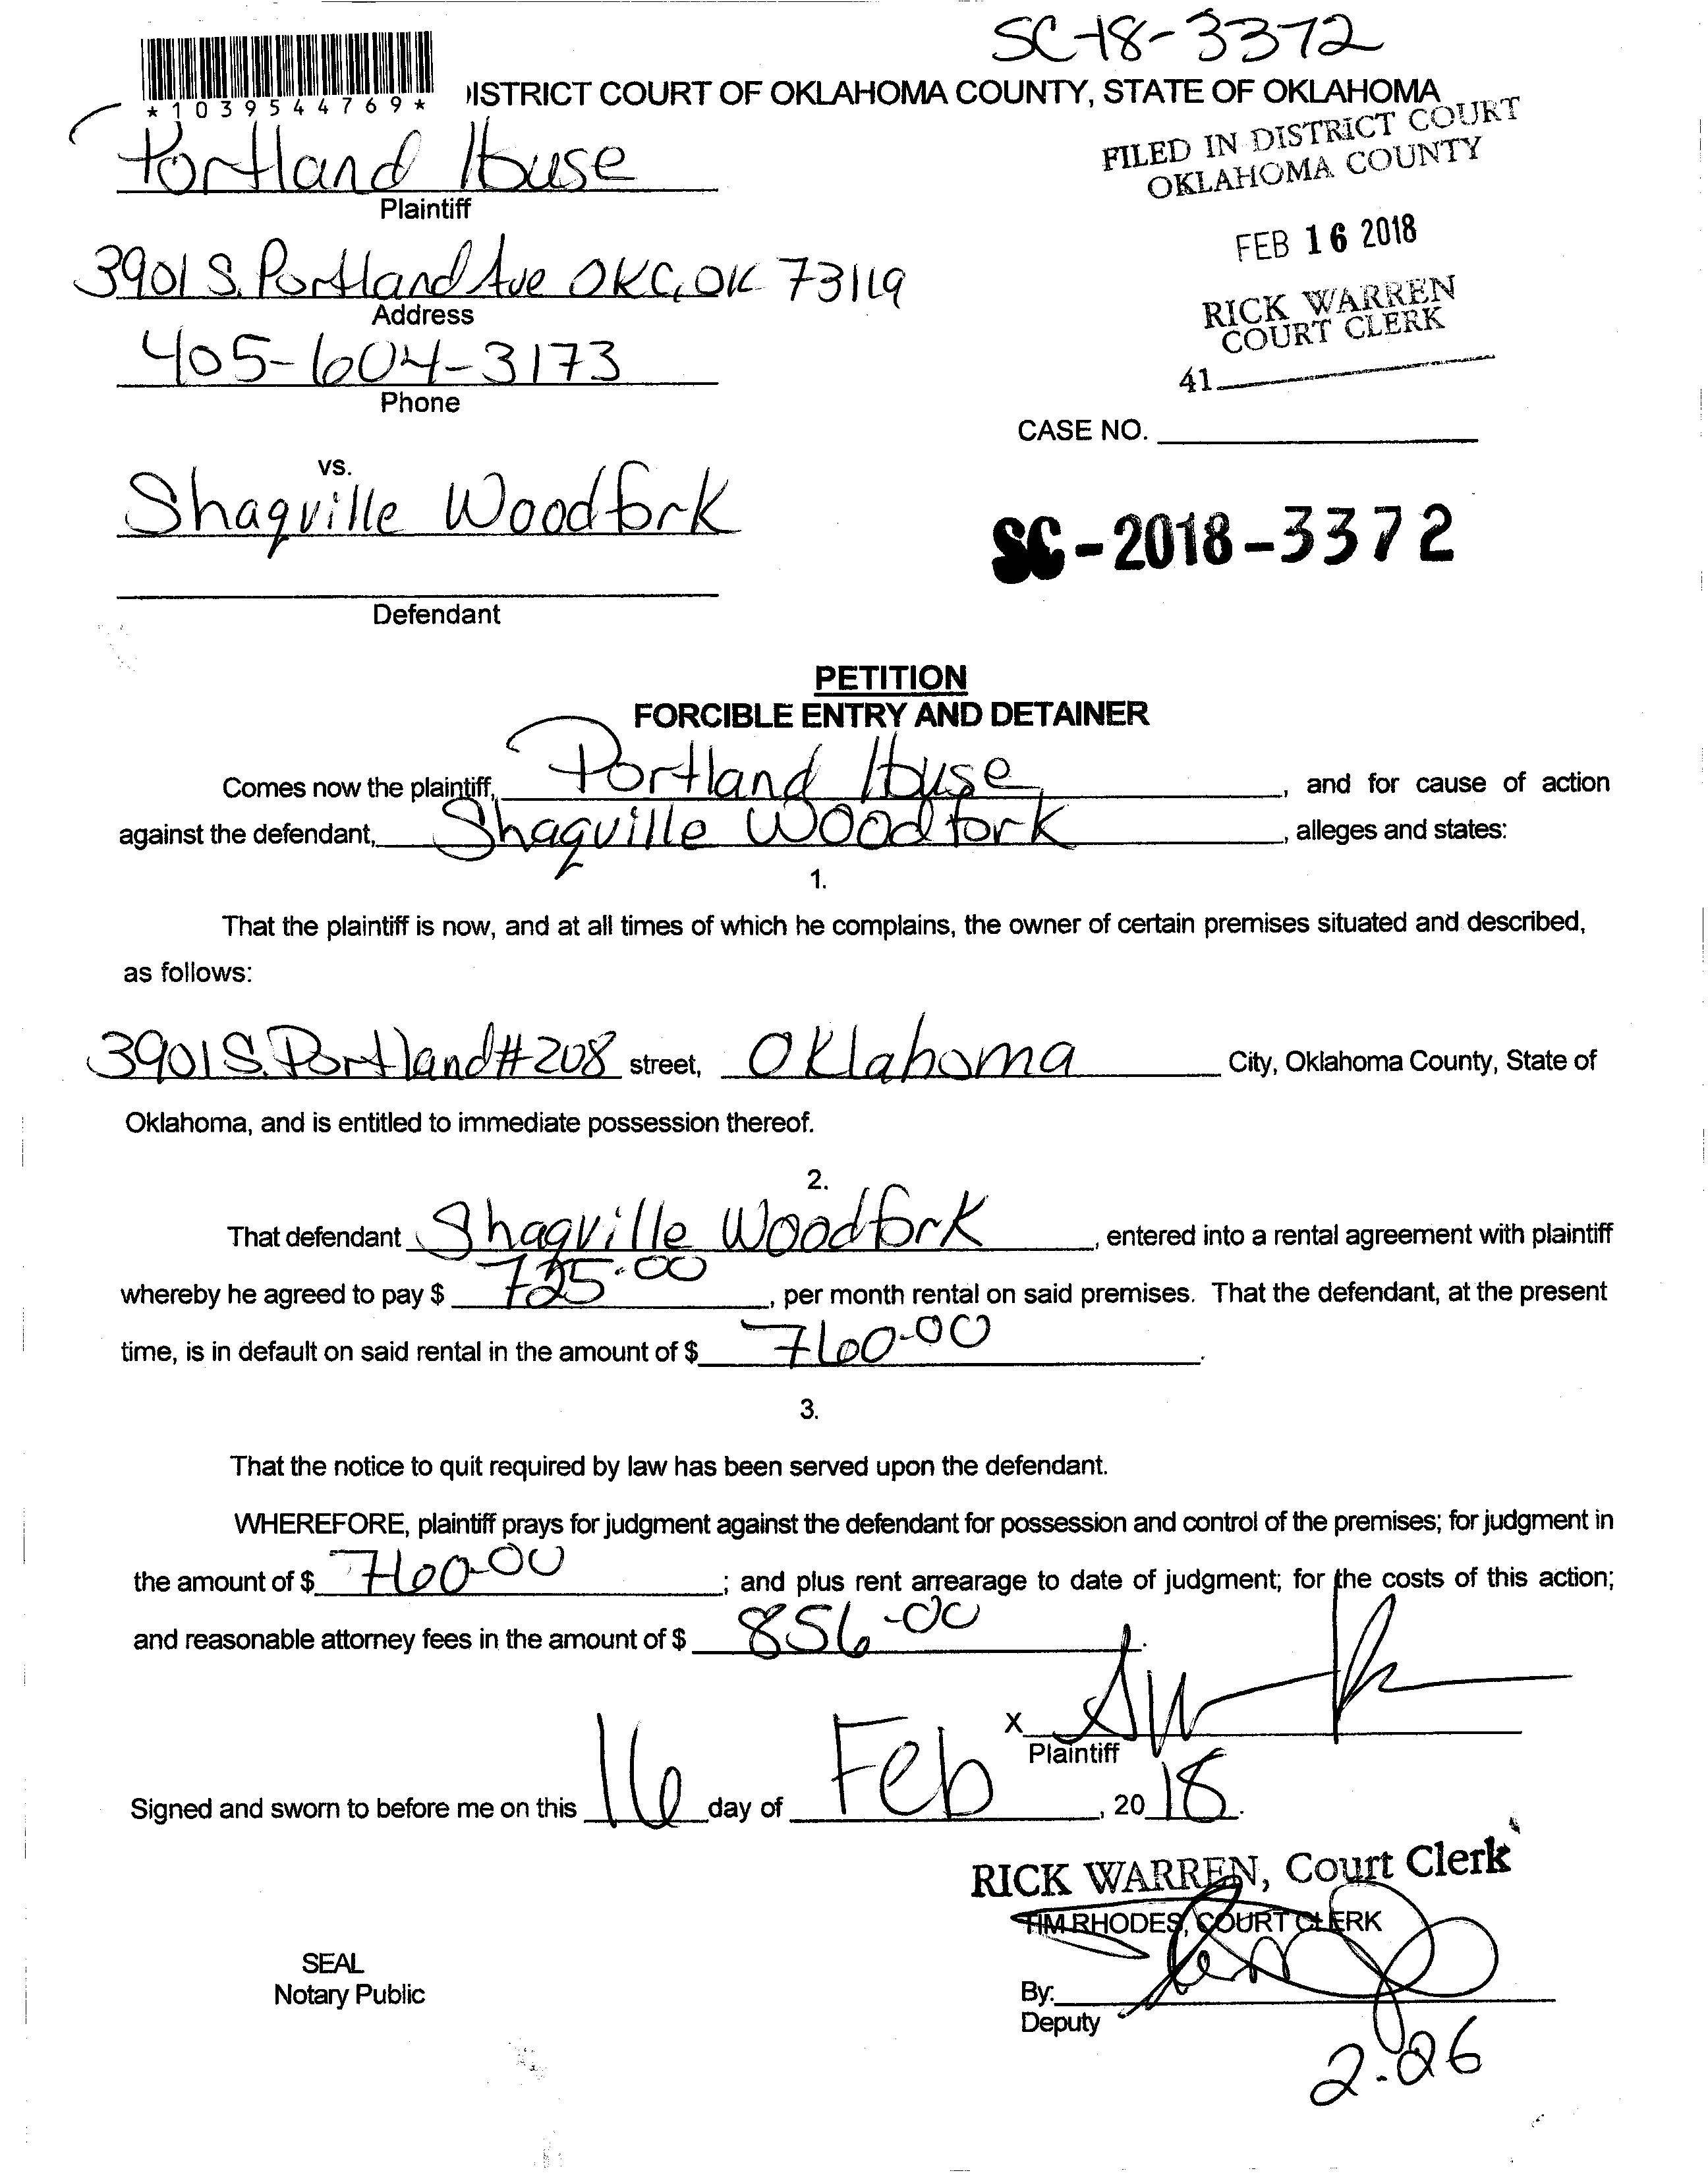 SC-18-3372
*1039544769*
ISTRICT COURT OF OKLAHOMA COUNTY, STATE OF OKLAHOMA
FILED IN DISTRICT COURT
OKLAHOMA COUNTY
FEB 16 2018
RICK WARREN
COURT CLERK
41
Portland House
Plaintiff
3901 S. Portland Ave OKC, OK 73119
Address
405-604-3173
Phone
CASE NO.
vs.
Shaqville Woodfork
SC-2018-3372
Defendant
PETITION
FORCIBLE ENTRY AND DETAINER
Comes now the plaintiff, Portland House, and for cause of action
against the defendant, Shaqville Woodfork, alleges and states:
1.
That the plaintiff is now, and at all times of which he complains, the owner of certain premises situated and described,
as follows:
3901 S. Portland #208 street, Oklahoma City, Oklahoma County, State of
Oklahoma, and is entitled to immediate possession thereof.
2.
That defendant Shaqville Woodfork, entered into a rental agreement with plaintiff
whereby he agreed to pay $ 725.00, per month rental on said premises. That the defendant, at the present
time, is in default on said rental in the amount of $ 760-00.
3.
That the notice to quit required by law has been served upon the defendant.
WHEREFORE, plaintiff prays for judgment against the defendant for possession and control of the premises; for judgment in
the amount of $ 760-00; and plus rent arrearage to date of judgment; for the costs of this action;
and reasonable attorney fees in the amount of $ 856-00.
X
Plaintiff
Signed and sworn to before me on this 16 day of Feb, 2018.
RICK WARREN, Court Clerk
TIM RHODES, COURT CLERK
SEAL
Notary Public
By:
Deputy
2-26